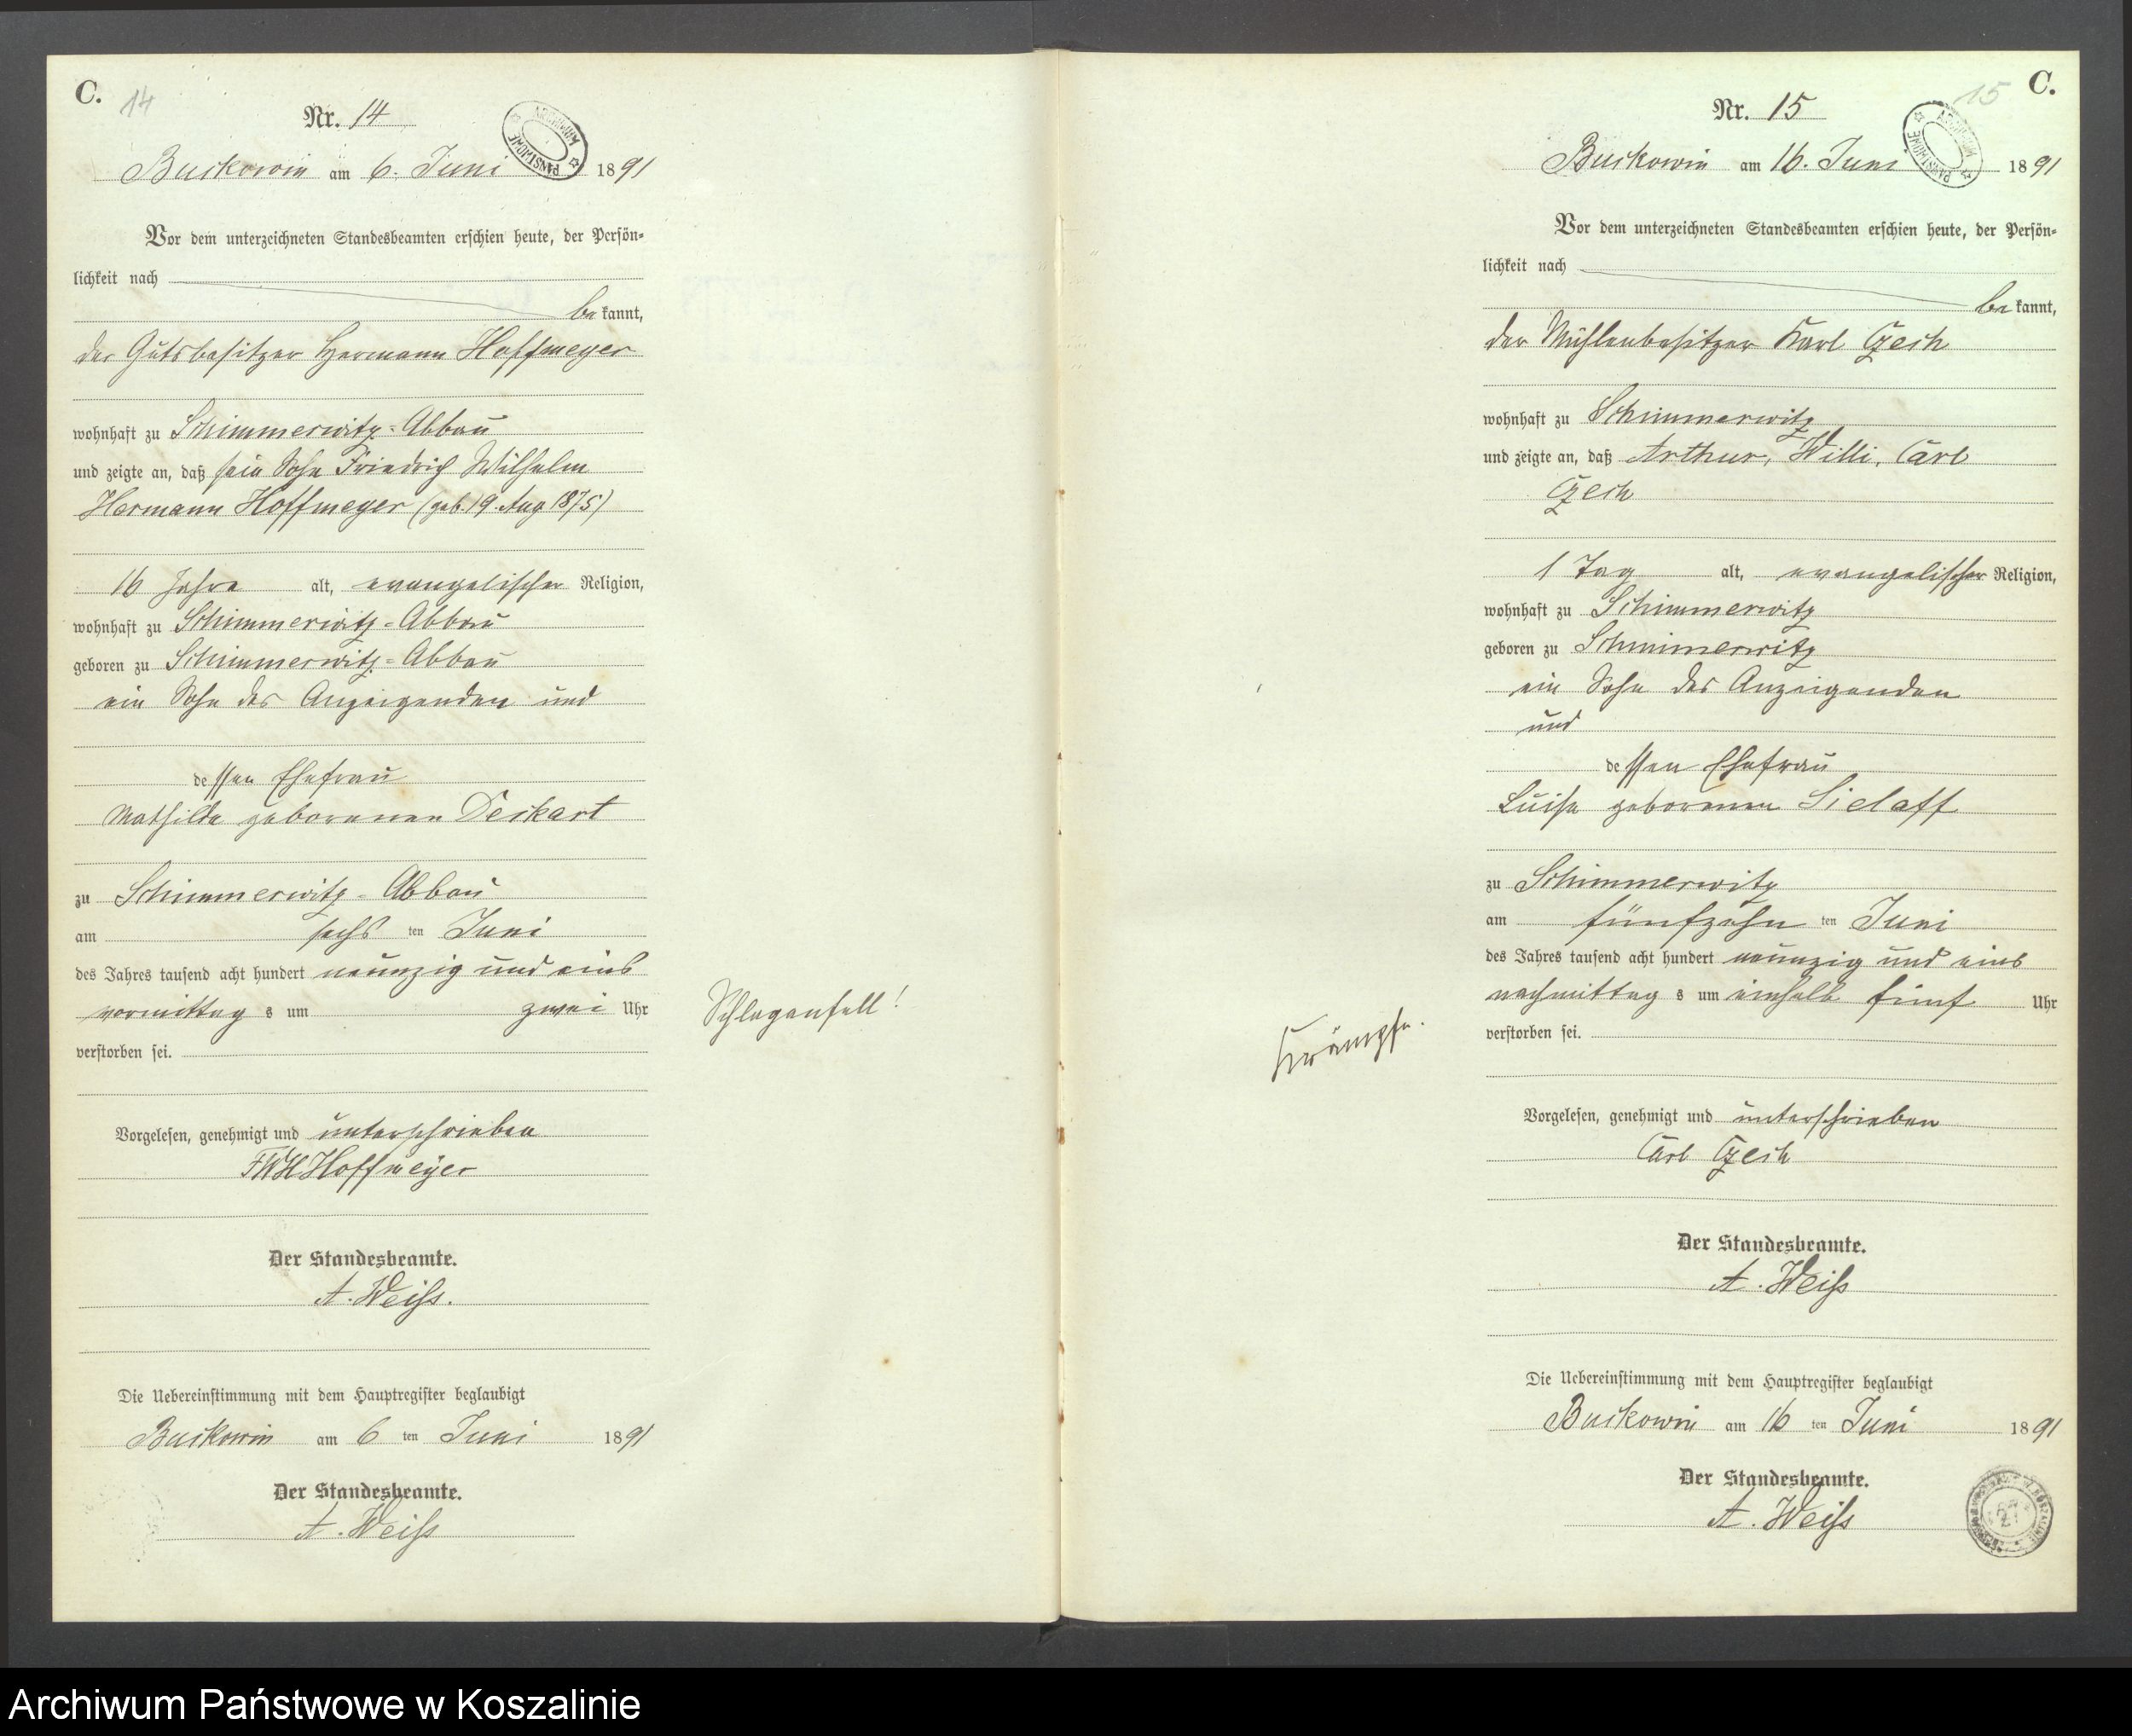 C. 14
Nr. 14
ARCHIWUM PAŃSTWOWE
Buckowin am 6. Juni 1891
Vor dem unterzeichneten Standesbeamten erschien heute, der Persön-
lichkeit nach
bekannt,
der Gutsbesitzer Hermann Hoffmeyer
wohnhaft zu Schimmerwitz-Abbau
und zeigte an, daß sein Sohn Friedrich Wilhelm
Hermann Hoffmeyer (geb. 19. Aug 1875)
16 Jahre alt, evangelischer Religion,
wohnhaft zu Schimmerwitz-Abbau
geboren zu Schimmerwitz-Abbau
ein Sohn des Anzeigenden und
dessen Ehefrau
Mathilde geborenen Deckart
zu Schimmerwitz-Abbau
am sechsten Juni
des Jahres tausend acht hundert neunzig und eins
vormittags um zwei Uhr
verstorben sei.
Schlaganfall!
Vorgelesen, genehmigt und unterschrieben
FWH Hoffmeyer
Der Standesbeamte.
A. Weiß.
Die Uebereinstimmung mit dem Hauptregister beglaubigt
Buckowin am 6ten Juni 1891
Der Standesbeamte.
A. Weiß
15 C.
Nr. 15
ARCHIWUM PAŃSTWOWE
Buckowin am 16. Juni 1891
Vor dem unterzeichneten Standesbeamten erschien heute, der Persön-
lichkeit nach
bekannt,
der Mühlenbesitzer Karl Czech
wohnhaft zu Schimmerwitz
und zeigte an, daß Arthur, Willi, Carl
Czech
1 Tag alt, evangelischer Religion,
wohnhaft zu Schimmerwitz
geboren zu Schimmerwitz
ein Sohn des Anzeigenden
und
dessen Ehefrau
Luise geborenen Sielaff
zu Schimmerwitz
am fünfzehnten Juni
des Jahres tausend acht hundert neunzig und eins
nachmittags um einhalb fünf Uhr
verstorben sei.
Krämpfe.
Vorgelesen, genehmigt und unterschrieben
Carl Czech
Der Standesbeamte.
A. Weiß
Die Uebereinstimmung mit dem Hauptregister beglaubigt
Buckowin am 16ten Juni 1891
Der Standesbeamte.
A. Weiß
27
Archiwum Państwowe w Koszalinie